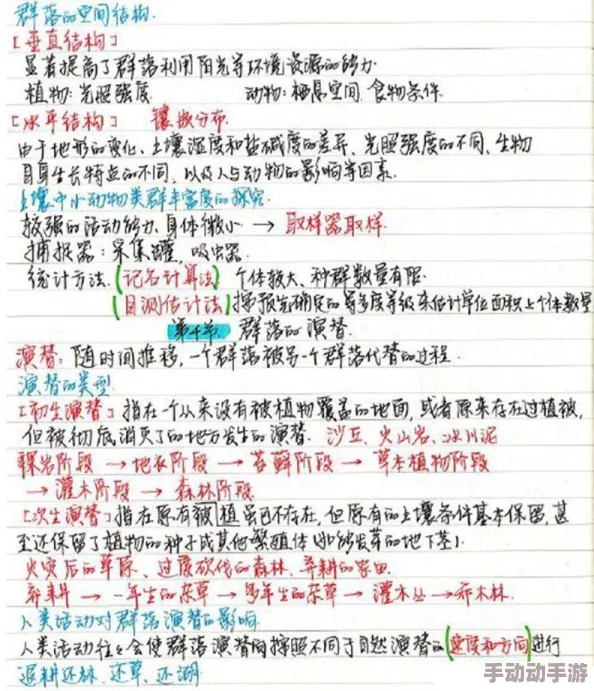 群落的空间结构.
[垂直结构]
显著提高了群落利用阳光等环境资源的能力
植物:光照强度 动物:栖息空间.食物条件.
[水平结构] 镶嵌分布.
由于地形的变化、土壤湿度和盐碱度的差异、光照强度的不同、生物
自身生长特点的不同,以及人与动物的影响等因素.
土壤中小动物类群丰富度的探究.
较强的活动能力、身体微小 → 取样器取样.
捕捉器:采集罐,吸虫器.
统计方法.(记名计算法) 个体较大、种群数量有限.
(目测估计法)按预先确定的多度等级来估计单位面积上个体数量
群落的演替.
演替:随时间推移,一个群落被另一个群落代替的过程.
演替的类型.
[初生演替]指在一个从来没有被植物覆盖的地面,或者原来存在过植被,
但被彻底消灭了的地方发生的演替. 沙丘、火山岩、冰川泥
裸岩阶段 → 地衣阶段 → 苔藓阶段 → 草本植物阶段
→ 灌木阶段 → 森林阶段
[次生演替]指在原有植虽已不存在,但原有的土壤条件基本保留,甚
至还保留了植物的种子或其他繁殖体(如能发芽的地下茎).
火灾后的草原、过度砍伐的森林、弃耕的农田
弃耕 → 一年生的杂草 → 多年生的杂草 → 灌木丛 → 乔木林.
人类活动对群落演替的影响.
人类活动往々会使群落演替按照不同于自然演替的(速度和方向)进行
退耕还林、还草、还湖.
手动动手游